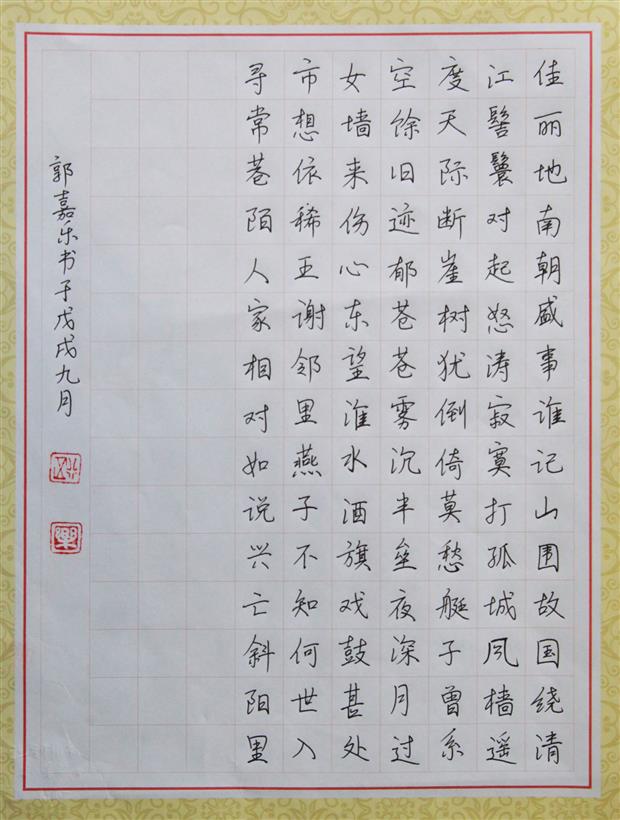 佳丽地南朝盛事谁记山围故国绕清
江髻鬟对起怒涛寂寞打孤城风樯遥
度天际断崖树犹倒倚莫愁艇子曾系
空馀旧迹郁苍苍雾沉半垒夜深月过
女墙来伤心东望淮水酒旗戏鼓甚处
市想依稀王谢邻里燕子不知何世入
寻常巷陌人家相对如说兴亡斜阳里
郭嘉乐书于戊戌九月